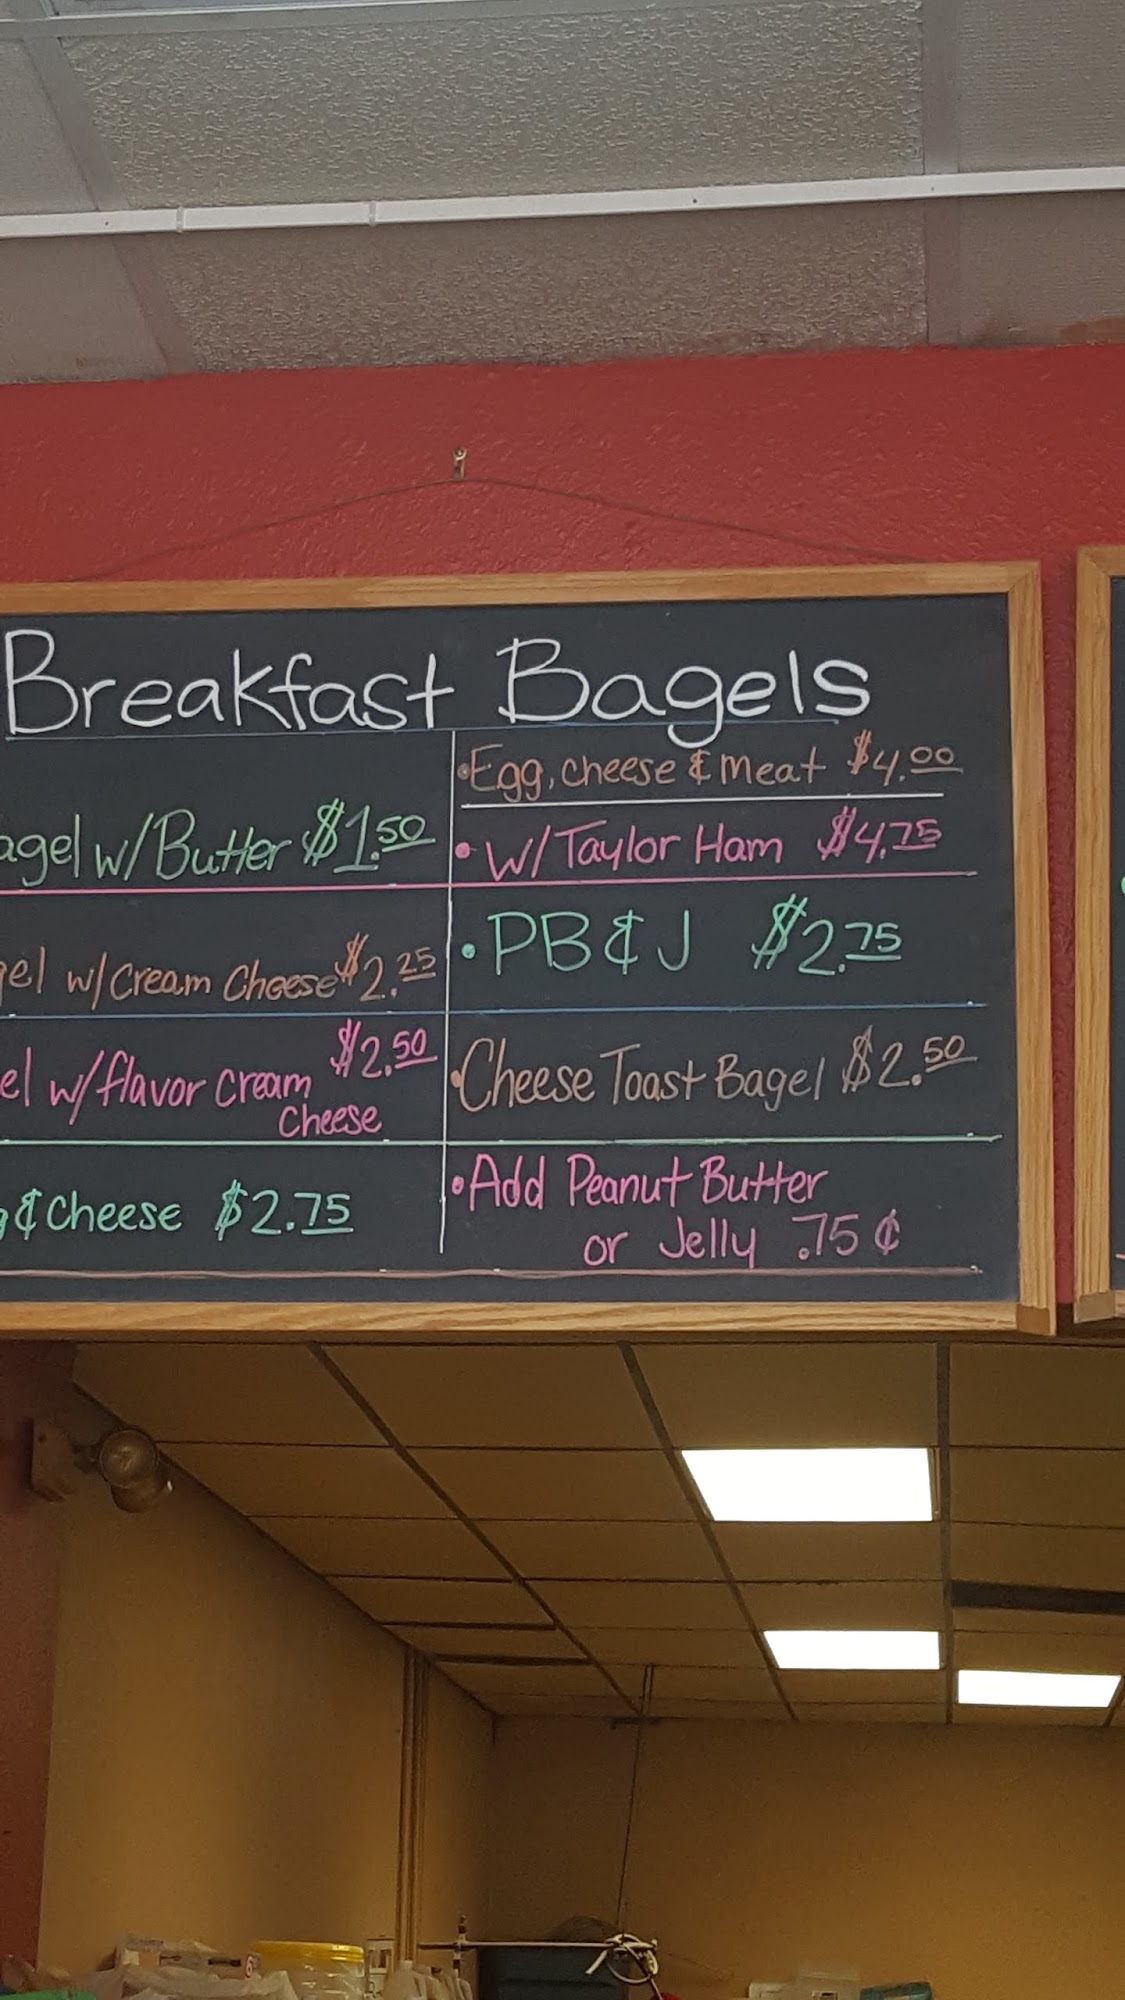 Breakfast Bagels
agel w/Butter $1.50
el w/Cream Cheese $2.25
el w/flavor cream $2.50
Cheese
& Cheese $2.75
•Egg, cheese & meat $4.00
• W/Taylor Ham $4.75
• PB & J $2.75
•Cheese Toast Bagel $2.50
•Add Peanut Butter
or Jelly .75 ¢